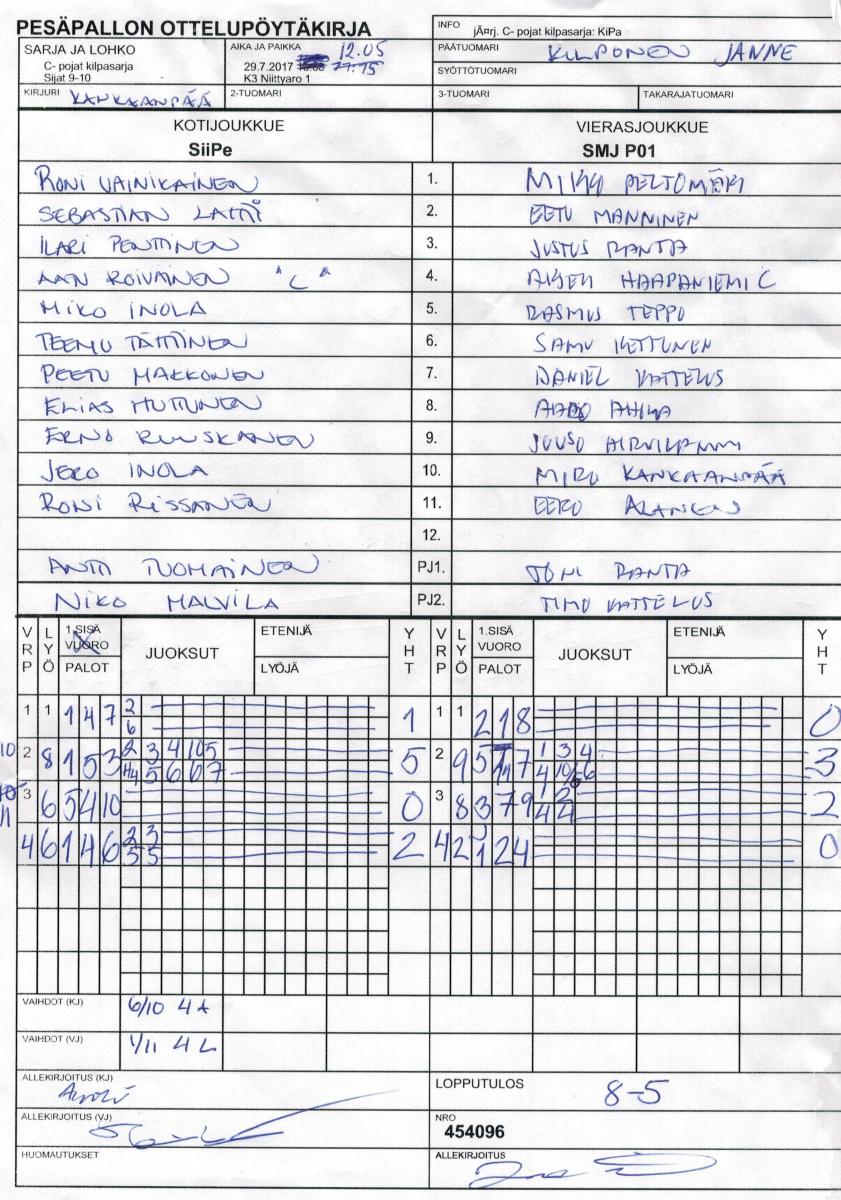 PESÄPALLON OTTELUPÖYTÄKIRJA
INFO jÄ¤rj. C- pojat kilpasarja: KiPa
SARJA JA LOHKO
C- pojat kilpasarja
Sijat 9-10
AIKA JA PAIKKA 12.05
29.7.2017 11.15
K3 Niittyaro 1
PÄÄTUOMARI KILPONEN JANNE
SYÖTTÖTUOMARI
KIRJURI KANKAANPÄÄ
2-TUOMARI
3-TUOMARI
TAKARAJATUOMARI
KOTIJOUKKUE VIERASJOUKKUE
SiiPe SMJ P01
RONI VAINIKAINEN 1. MIKKO PELTOMÄKI
SEBASTIAN LATTI 2. EETU MANNINEN
ILARI PENTTINEN 3. JUSTUS RANTA
AAN ROIVAINEN "C" 4. HAAPANIEMI C
MIKO INOLA 5. RASMUS TEPPO
TEEMU TÄTTINEN 6. SAMU KETTUNEN
PEETU MAKKONEN 7. DANIEL KATTELUS
ELIAS HUTTUNEN 8.
ERNO RUUSKANEN 9. JUUSO
JERO INOLA 10. MIRO KANKAANPÄÄ
RONI RISSANEN 11. EERO ALANEN
12.
ANTTI TUOMAINEN PJ1. TOMI RANTA
NIKO MALVILA PJ2. TIMO KATTELUS
VRP LYÖ 1.SISÄ VUORO PALOT JUOKSUT ETENIJÄ LYÖJÄ YHT VRP LYÖ 1.SISÄ VUORO PALOT JUOKSUT ETENIJÄ LYÖJÄ YHT
1 1 1 4 7 2 1 1 1 2 1 8 0
6
10 2 8 1 5 3 2 3 4 10 5 5 2 9 5 11 7 1 3 4 3
4 5 6 6 7 4 10 6
11 3 6 5 4 10 0 3 8 3 7 9 1 2 2
4 4
4 6 1 4 6 2 3 2 4 2 1 2 4 0
5 5
VAIHDOT (KJ) 6/10 4A
VAIHDOT (VJ) 1/11 4L
ALLEKIRJOITUS (KJ)
LOPPUTULOS 8-5
ALLEKIRJOITUS (VJ)
NRO
454096
HUOMAUTUKSET
ALLEKIRJOITUS